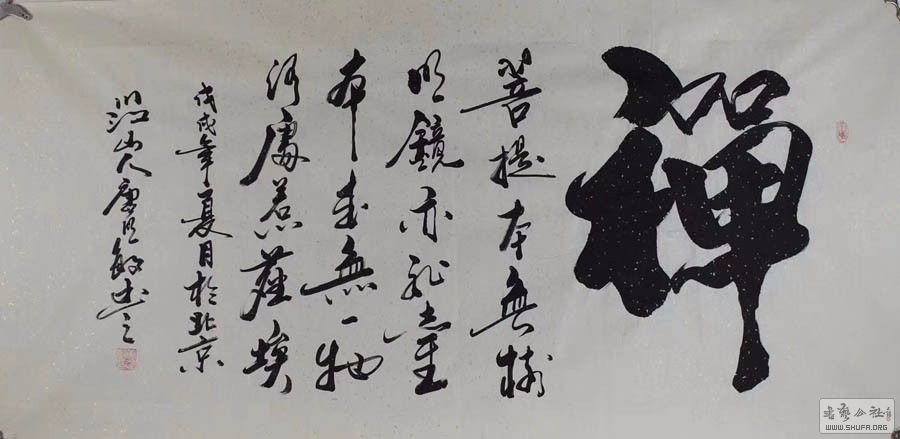 禪
菩提本無樹
明鏡亦非臺
本來無一物
何處惹塵埃
戊戌年夏月於北京
山人唐敏之
书艺公社
WWW.SHUFA.ORG